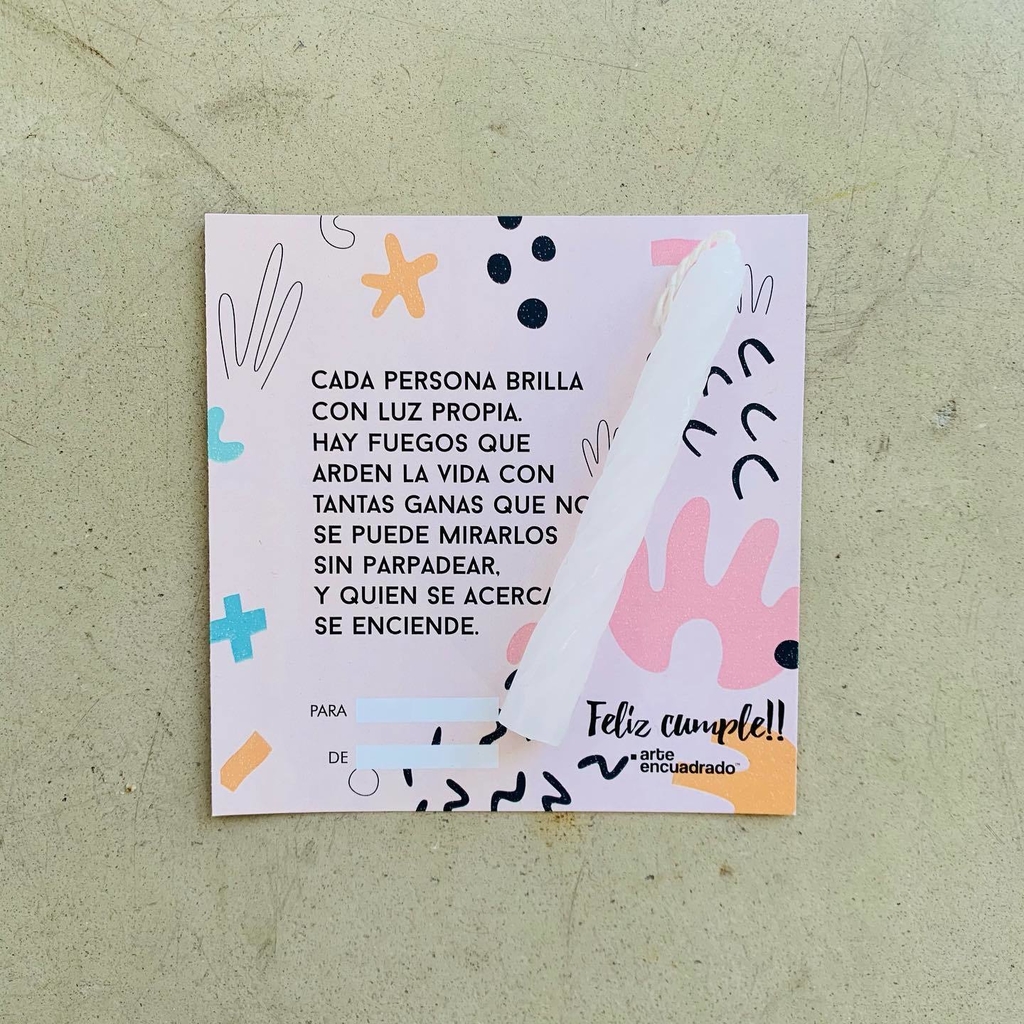 CADA PERSONA BRILLA
CON LUZ PROPIA.
HAY FUEGOS QUE
ARDEN LA VIDA CON
TANTAS GANAS QUE NO
SE PUEDE MIRARLOS
SIN PARPADEAR,
Y QUIEN SE ACERCA
SE ENCIENDE.
PARA
DE
Feliz cumple!!
arte
encuadrado™